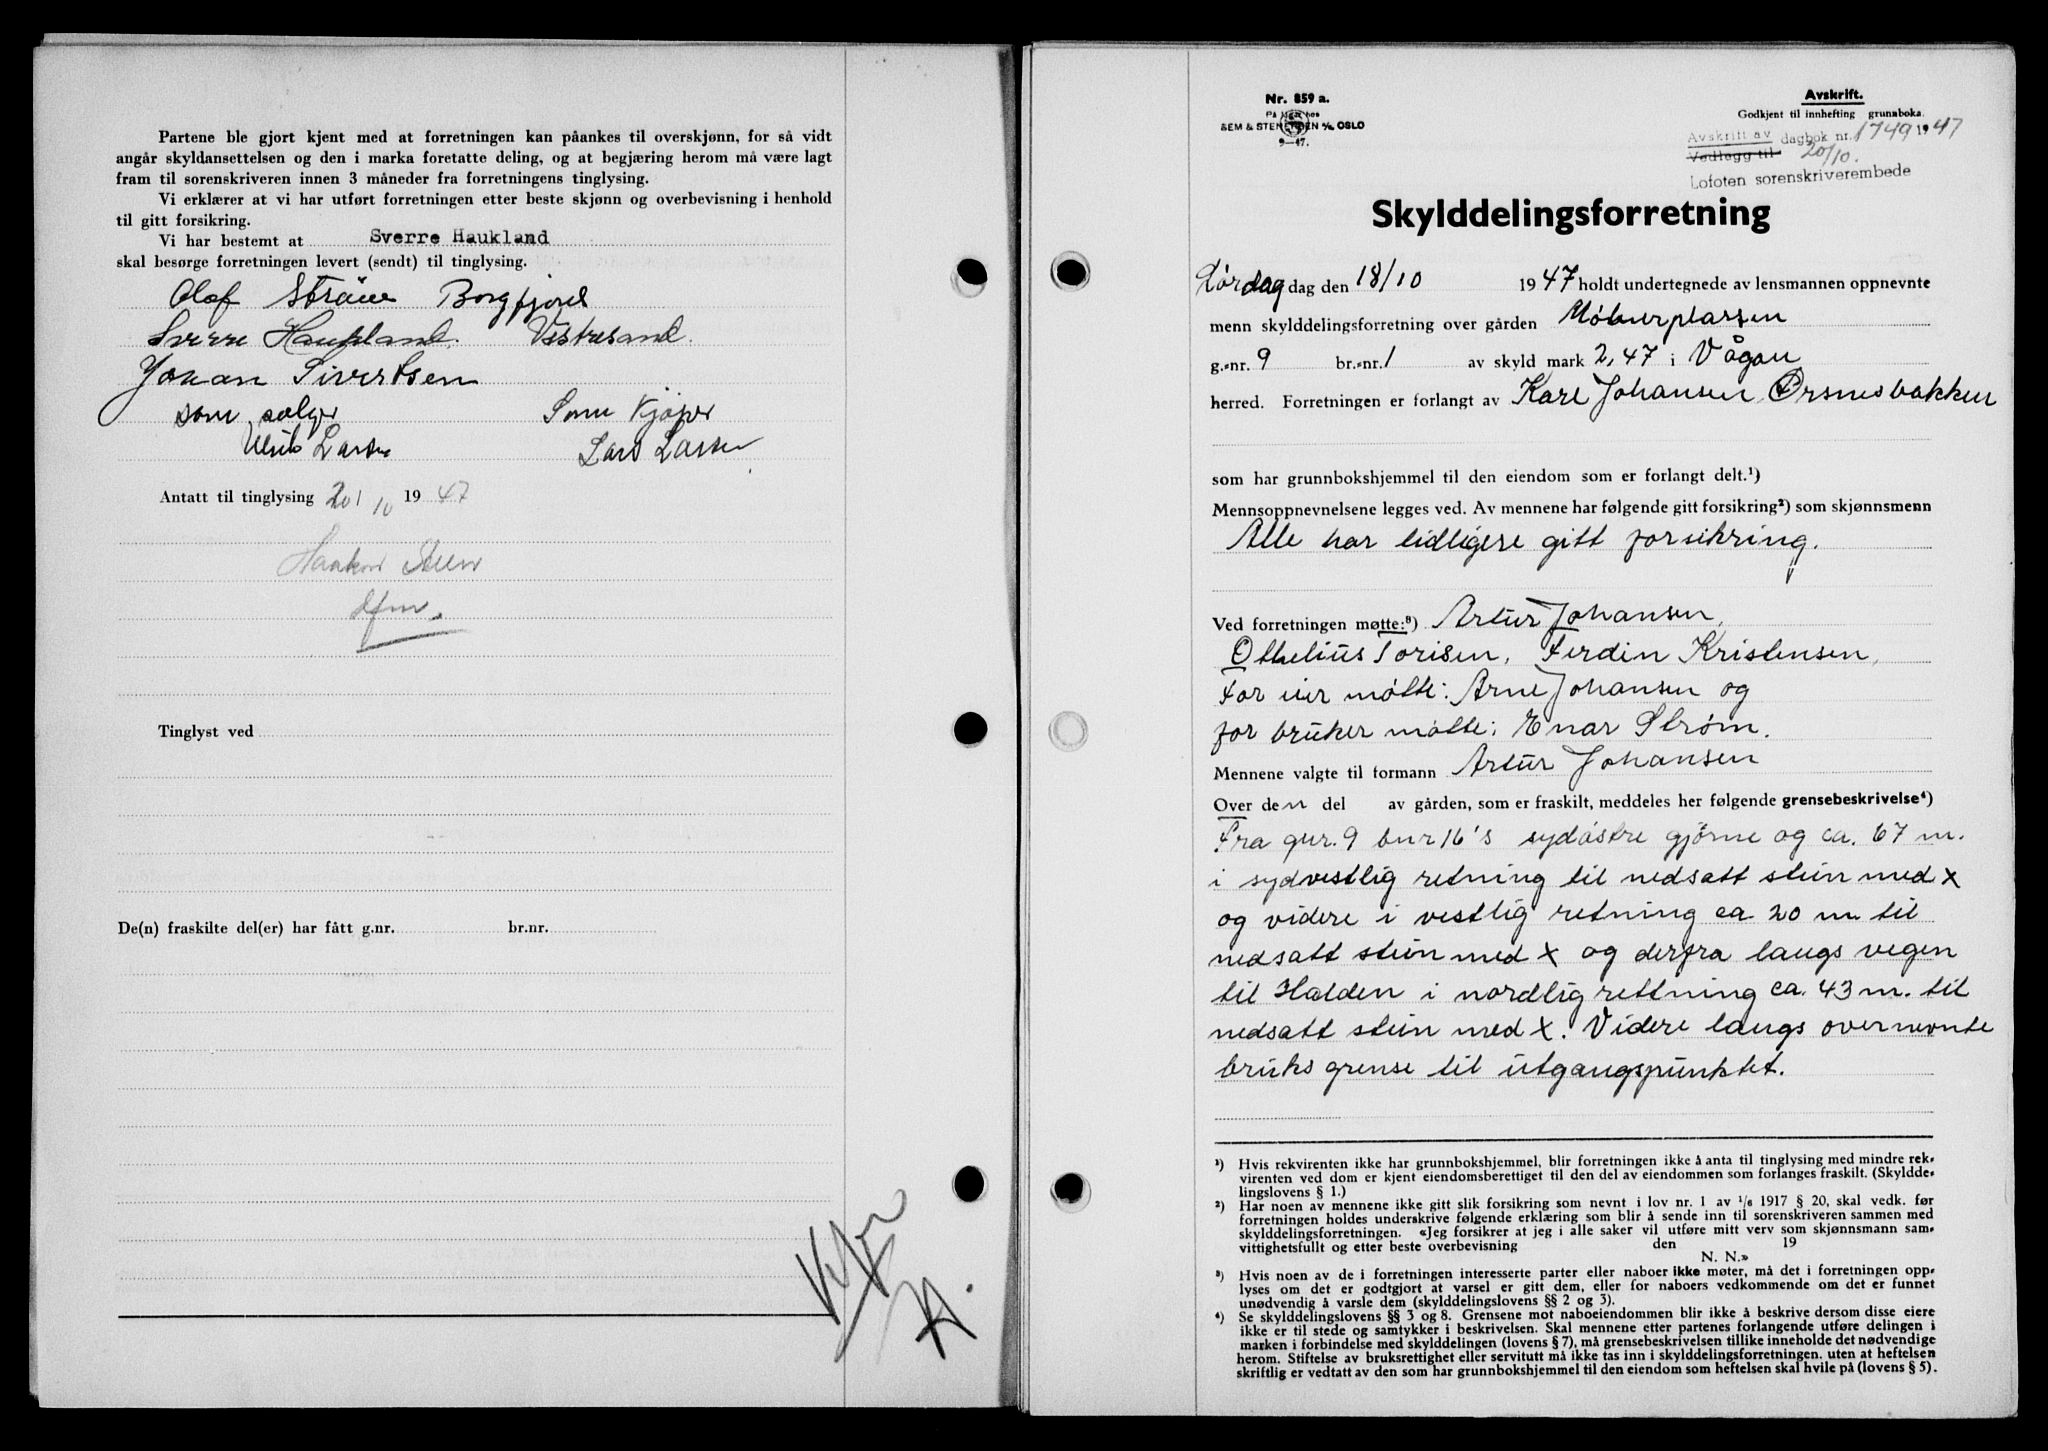 Partene ble gjort kjent med at forretningen kan påankes til overskjønn, for så vidt
angår skyldansettelsen og den i marka foretatte deling, og at begjæring herom må være lagt
fram til sorenskriveren innen 3 måneder fra forretningens tinglysing.
Vi erklærer at vi har utført forretningen etter beste skjønn og overbevisning i henhold
til gitt forsikring.
Vi har bestemt at Sverre Haukland
skal besørge forretningen levert (sendt) til tinglysing.
Olaf Stråve Borgfjord
Sverre Haukland. Vestresand.
Johan Sivertsen
som selger Som Kjøper
Ulrik Larsen Lars Larsen
Antatt til tinglysing 20/10 1947
Haakon Steen
dfm.
Tinglyst ved
De(n) fraskilte del(er) har fått g.nr. br.nr.
Nr. 859 a.
På lager hos
SEM & STENERSEN A/S OSLO
9—47.
Avskrift.
Godkjent til innhefting grunnboka.
Avskrift av dagbok nr. 1749 1947
Vedlegg til 20/10.
Lofoten sorenskriverembede
Skylddelingsforretning
Lørdag dag den 18/10 1947 holdt undertegnede av lensmannen oppnevnte
menn skylddelingsforretning over gården Møburplassen
g.-nr. 9 br.-nr. 1 av skyld mark 2,47 i Vågan
herred. Forretningen er forlangt av Karl Johansen, Ørsnesbakken
som har grunnbokshjemmel til den eiendom som er forlangt delt.¹)
Mennsoppnevnelsene legges ved. Av mennene har følgende gitt forsikring²) som skjønnsmenn
Alle har tidligere gitt forsikring.
Ved forretningen møtte:³) Artur Johansen,
Othelius Torisen, Ferdin Kristensen,
For eier møtte: Arne Johansen og
for bruker møtte: Enar Strøm.
Mennene valgte til formann Artur Johansen
Over den del av gården, som er fraskilt, meddeles her følgende grensebeskrivelse⁴)
Fra gnr. 9 bnr 16's sydøstre gjørne og ca. 67 m.
i sydvestlig retning til nedsatt stein med x
og videre i vestlig retning ca 20 m til
nedsatt stein med x og derfra langs vegen
til Halden i nordlig rettning ca. 43 m. til
nedsatt stein med x. Videre langs overnevnte
bruks grense til utgangspunktet.
¹) Hvis rekvirenten ikke har grunnbokshjemmel, blir forretningen ikke å anta til tinglysing med mindre rek-
virenten ved dom er kjent eiendomsberettiget til den del av eiendommen som forlanges fraskilt. (Skyldde-
lingslovens § 1.)
²) Har noen av mennene ikke gitt slik forsikring som nevnt i lov nr. 1 av 1/6 1917 § 20, skal vedk. før
forretningen holdes underskrive følgende erklæring som blir å sende inn til sorenskriveren sammen med
skylddelingsforretningen. «Jeg forsikrer at jeg i alle saker vil utføre mitt verv som skjønnsmann sam-
vittighetsfullt og etter beste overbevisning den 19
N. N.»
³) Hvis noen av de i forretningen interesserte parter eller naboer ikke møter, må det i forretningen opp-
lyses om det er godtgjort at varsel er gitt dem, eller for naboers vedkommende om det er funnet
unødvendig å varsle dem (skylddelingslovens §§ 2 og 3).
⁴) Se skylddelingslovens §§ 3 og 8. Grensene mot naboeiendommen blir ikke å beskrive dersom disse eiere
ikke er til stede og samtykker i beskrivelsen. Skal mennene etter partenes forlangende utføre delingen i
marken i forbindelse med skylddelingen (lovens § 7), må grensebeskrivelsen tillike inneholde det nødvendige
herom. Stiftelse av bruksrettighet eller servitutt må ikke tas inn i skylddelingsforretningen. uten at heftelsen
skriftlig er vedtatt av den som har grunnbokshjemmel til den eiendom som heftelsen skal hvile på (lovens § 5).